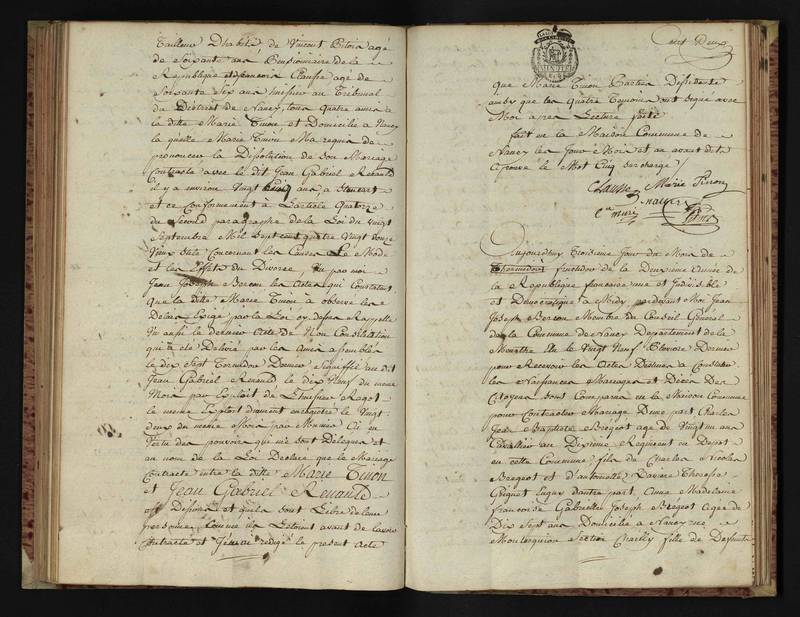 Tailleur Dhabits, de Vincent Pitois agé
de Soixante ans Pensionnaire de la
Republique et françois Clausse agé de
Soixante Six ans huissier au Tribunal
du District de Nancy, tous quatre amis a
la ditte Marie Tinon et Domiciliés a Nancy
la quelle Marie Tinon Ma requis de
prononcer la Dissolution de Son Mariage
Contracté avec le dit Jean Gabriel Renauld
il y a environ Vingt Cinq ans a
et ce Conformement a Larticle Quatorze
du Second paragraphe de la Loi du Vingt
Septembre Mil Sept cent quatre Vingt douze
Vieux Stile Concernant les Causes Le Mode
et les Effets du Divorce, Vu par moi
Jean Joseph Berson les actes qui Constatent
Que la ditte Marie Tinon a observé les
Delais Exigé par la Loi cy dessus Rappellé
Vu aussi le dernier acte de Non Conciliation
qui a été Delivré par les Amis assemblés
le dix Sept Termidor Dernier Signiffié au dit
Jean Gabriel Renauld le dix Neuf du meme
Mois par Exploit de Lhuissier Ragot
le meme Exploit düment enregistré le Vingt
deux du meme Mois par Mumer En
Vertu des pouvoirs qui me sont Delegués et
au nom de la Loi Declare que le Mariage
Contracté entre la ditte Marie Tinon
et Jean Gabriel Renauld
est Dissous et quils sont Libre de leur
personne, Comme ils Letoient avant de lavoir
Contracté et J'en ai redigé le present Acte
Cent Deux
que Marie Tinon Partie Diffidente
ainsy que les Quatre Temoins ont Signé avec
Moi apres Lecture faite
fait en la Maison Commune de
Nancy les Jour et Mois et an avant dit
aprouvé le Mot Cinq surchargé
Clausse Marie Tinon
Aujourdhuy Troisieme Jour du Mois de
Thermidor fructidor de la Deuxieme Année de
la Republique francaise une et Indivisible
et Democratique a Midy pardevant Moi Jean
Joseph Berson Membre du Conseil General
de la Commune de Nancy Departement de la
Meurthe Elu le Vingt Neuf Floréal Dernier
pour Recevoir les Actes Destinés a Constater
les Naissances Mariages et Décés Des
Citoyens Sont Comparus en la Maison Commune
pour Contracter Mariage Dune part Charles
Jean Baptiste Bregeot agé de Vingt un ans
Cavallier au Dixieme Regiment en Depot
en cette Commune, fils de Charles Nicolas
Bregeot et d'antoinette Davine Therese
dautre part, Anne Madelaine
francoise Gabrielle Joseph Bregeot agée de
Dix Sept ans Domiciliée a Nancy rue
Section Chailly fille de Deffunte